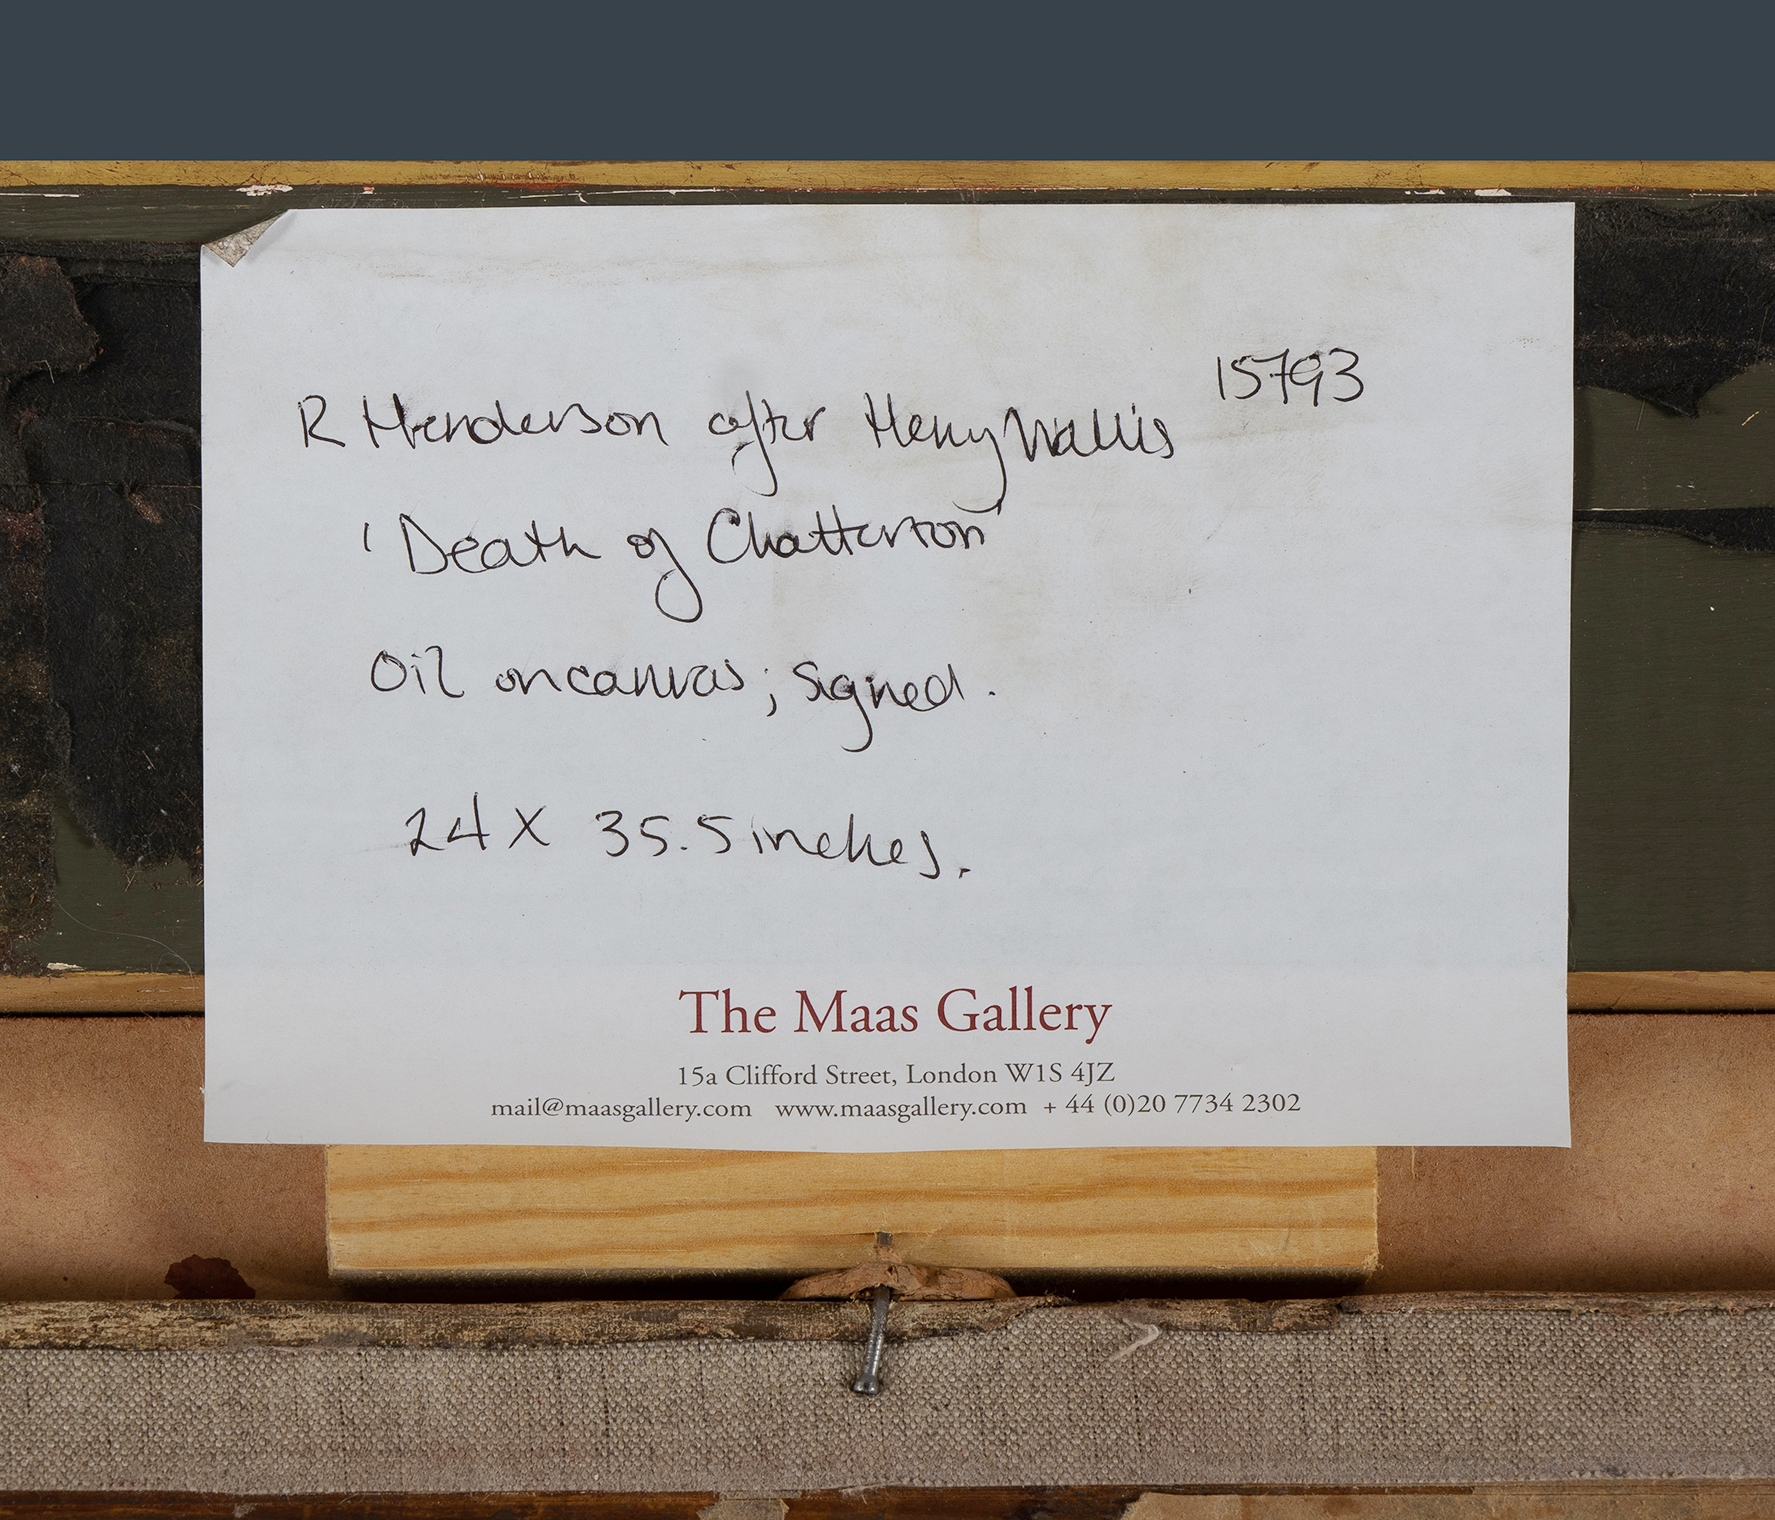 15793
R Henderson after Henry Wallis
'Death of Chatterton'
Oil on canvas; signed.
24 X 35.5 inches.
The Maas Gallery
15a Clifford Street, London W1S 4JZ
mail@maasgallery.com www.maasgallery.com + 44 (0)20 7734 2302